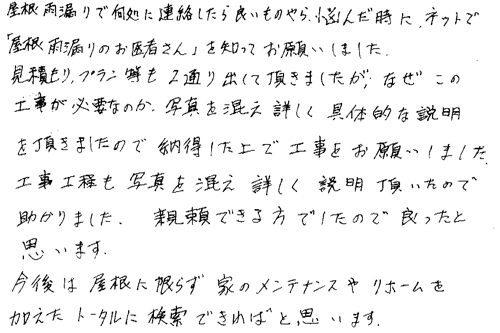 屋根雨漏りで何処に連絡したら良いものやら、悩んだ時に、ネットで
「屋根雨漏りのお医者さん」を知ってお願いしました.
見積もり,プラン等も 2通り出して頂きましたが,なぜこの
工事が必要なのか.写真を混え詳しく具体的な説明
を頂きましたので納得した上で工事をお願いしました.
工事工程も写真を混え詳しく説明頂いたので
助かりました. 親頼できる方でしたので良ったと
思います.
今後は屋根に限らず家のメンテナンスやリホームを
加えたトータルに検索できればと思います.